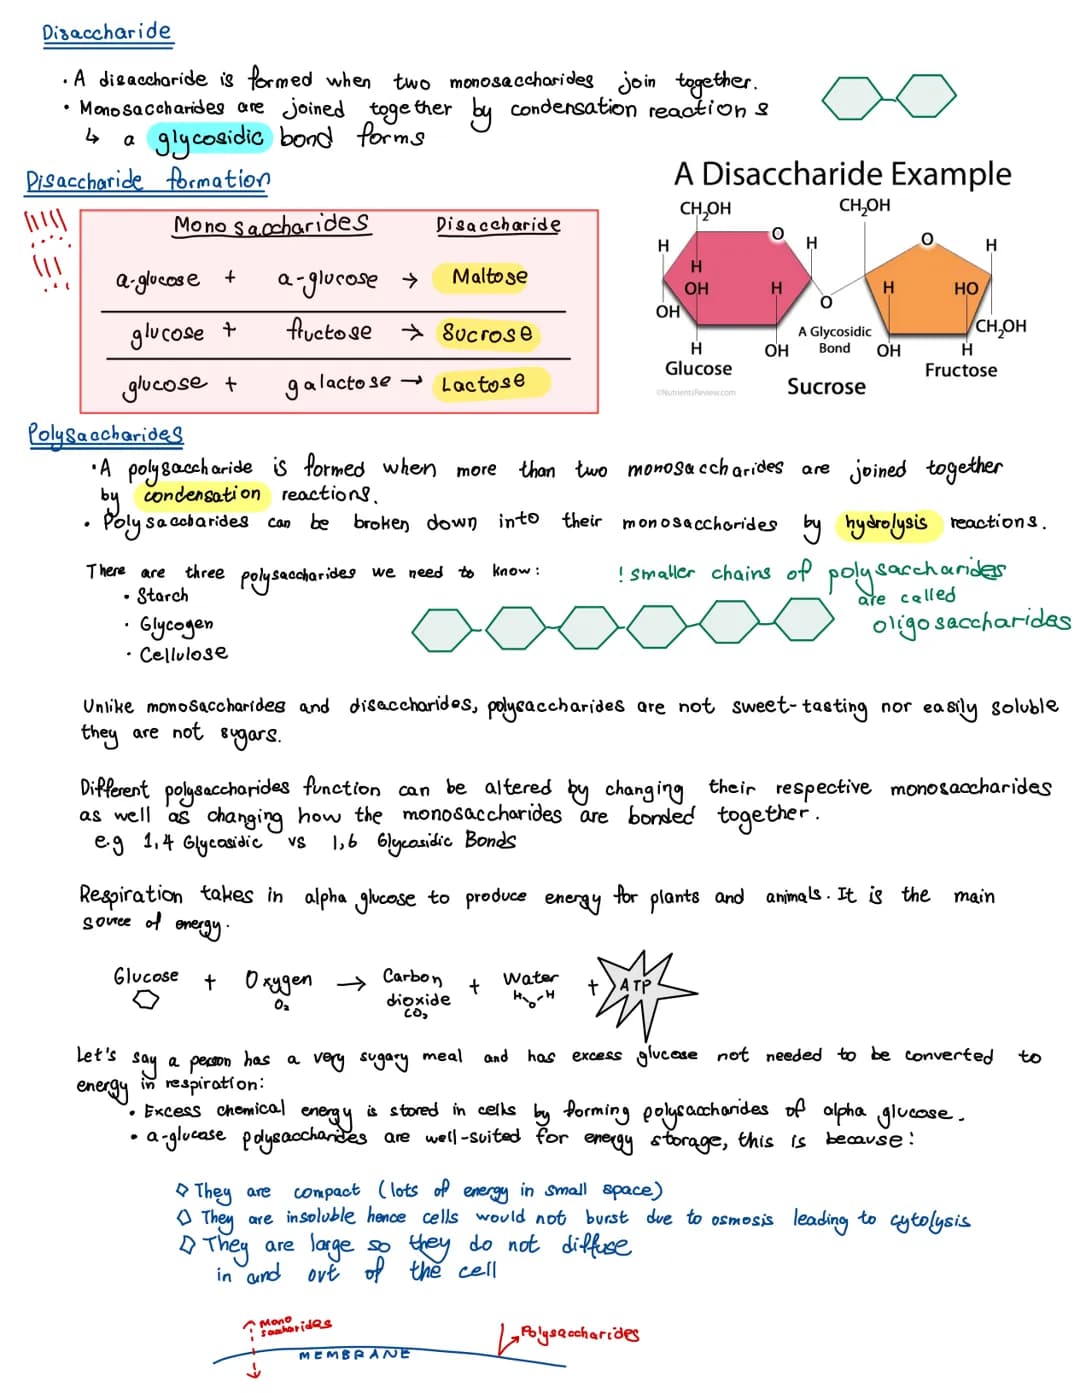 Disaccharide
• A disaccharide is formed when two monosaccharides join together.
• Monosaccharides are joined together by condensation reactions
↳ a glycosidic bond forms
Disaccharide formation
Monosaccharides Disaccharide
a-glucose + a-glucose → Maltose
glucose + fructose → Sucrose
glucose + galactose → Lactose
A Disaccharide Example
CH₂OH CH₂OH
O O
H H H
H
OH H H HO
OH O
A Glycosidic Bond
CH₂OH
H OH OH H
Glucose Fructose
Sucrose
©NutrientsReview.com
Polysaccharides
• A polysaccharide is formed when more than two monosaccharides are joined together
by condensation reactions.
• Polysaccharides can be broken down into their monosaccharides by hydrolysis reactions.
There are three polysaccharides we need to know:
• Starch
• Glycogen
• Cellulose
! smaller chains of polysaccharides
are called
oligosaccharides
Unlike monosaccharides and disaccharides, polysaccharides are not sweet-tasting nor easily soluble
they are not sugars.
Different polysaccharides function can be altered by changing their respective monosaccharides
as well as changing how the monosaccharides are bonded together.
e.g 1,4 Glycosidic vs 1,6 Glycosidic Bonds
Respiration takes in alpha glucose to produce energy for plants and animals. It is the main
source of energy.
Glucose + Oxygen → Carbon dioxide + Water + ATP
O₂ CO₂ H O H
Let's say a person has a very sugary meal and has excess glucose not needed to be converted to
energy in respiration:
• Excess chemical energy is stored in cells by forming polysaccharides of alpha glucose.
• a-glucose polysaccharides are well-suited for energy storage, this is because:
They are compact (lots of energy in small space)
They are insoluble hence cells would not burst due to osmosis leading to cytolysis
They are large so they do not diffuse
in and out of the cell
Mono
saccharides
Polysaccharides
MEMBRANE